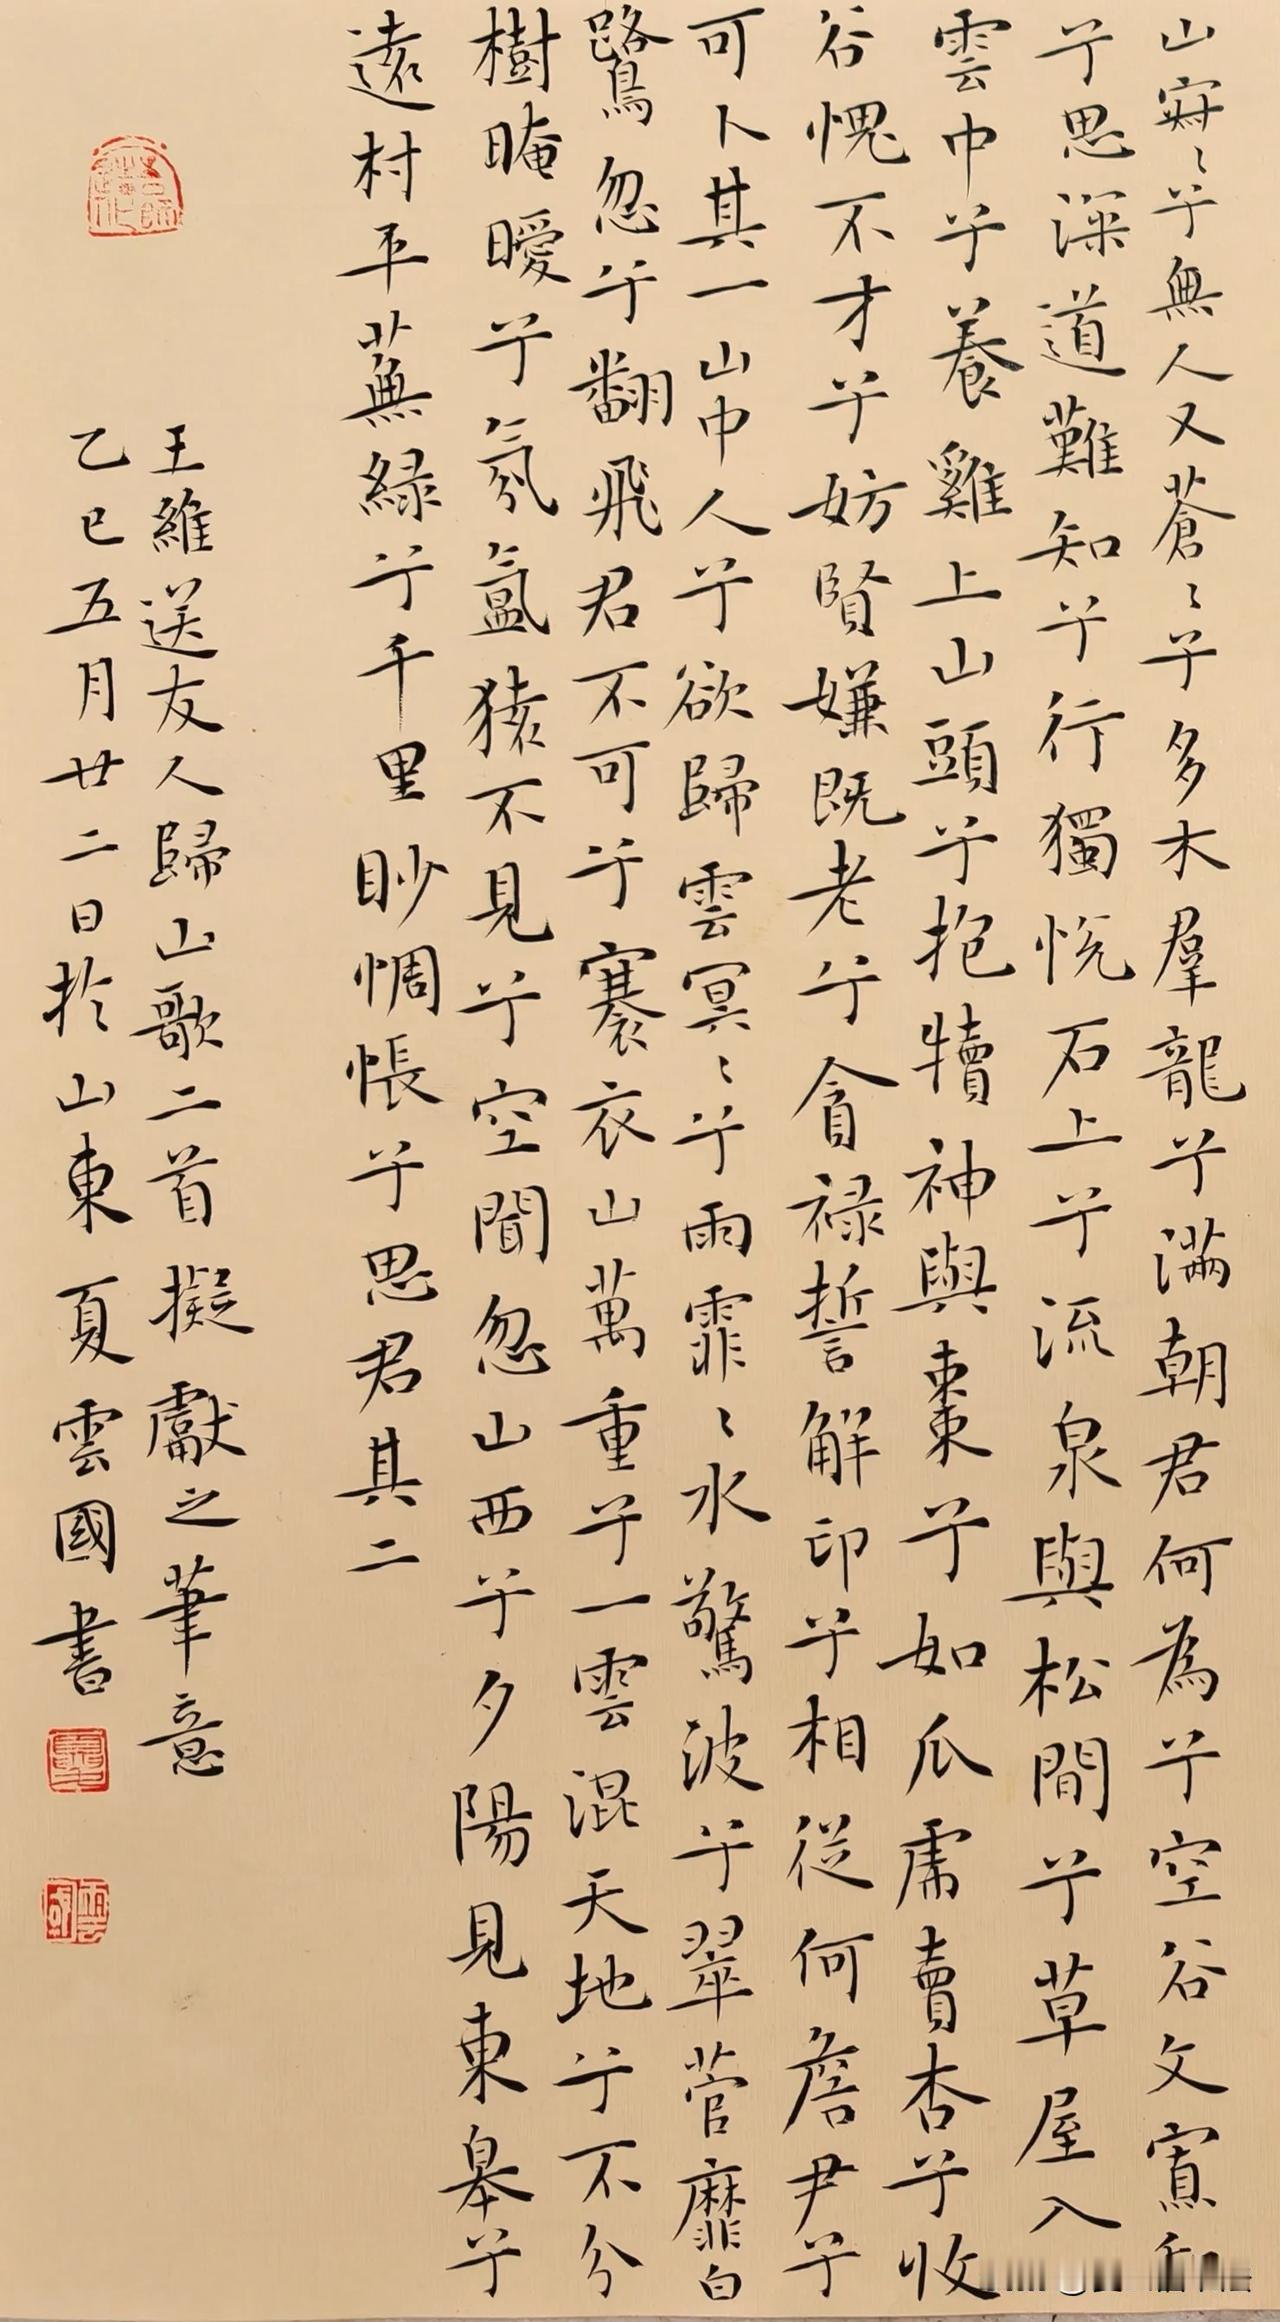 山寂〻兮無人又蒼〻兮多木羣龍兮滿朝君何為兮空谷文寡和
兮思深道難知兮行獨悅石上兮流泉與松間兮草屋入
雲中兮養雞上山頭兮抱犢神與棗兮如瓜虎賣杏兮收
谷愧不才兮妨賢嫌既老兮貪祿誓解印兮相從何詹尹兮
可卜其一山中人兮欲歸雲冥〻兮雨霏〻水驚波兮翠菅靡白
鷺忽兮翻飛君不可兮褰衣山萬重兮一雲混天地兮不分
樹晻曖兮氛氳猿不見兮空聞忽山西兮夕陽見東皋兮
遠村平蕪綠兮千里眇惆悵兮思君其二
王維送友人歸山歌二首擬獻之筆意
乙巳五月廿二日於山東夏雲國書